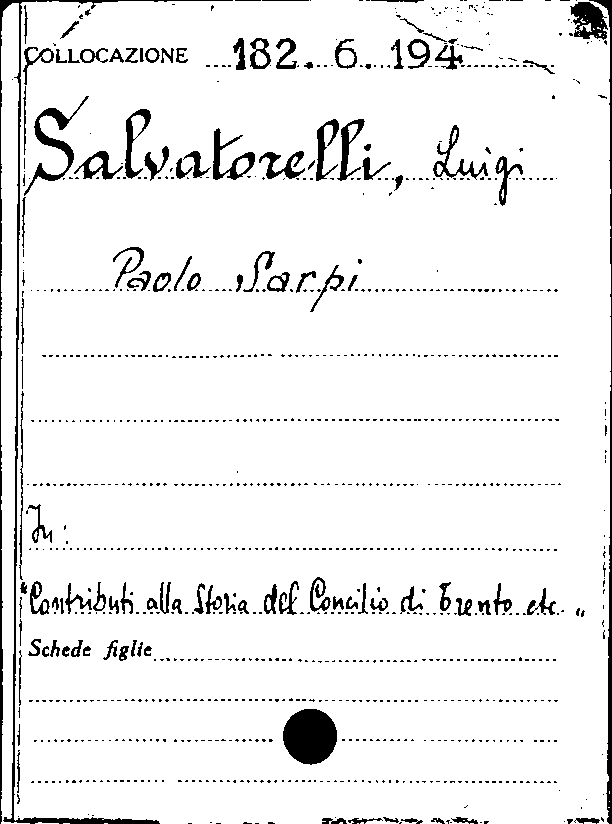 COLLOCAZIONE 182. 6. 194
Salvatorelli, Luigi
Paolo Sarpi
In:
"Contributi alla Storia del Concilio di Trento etc. "
Schede figlie